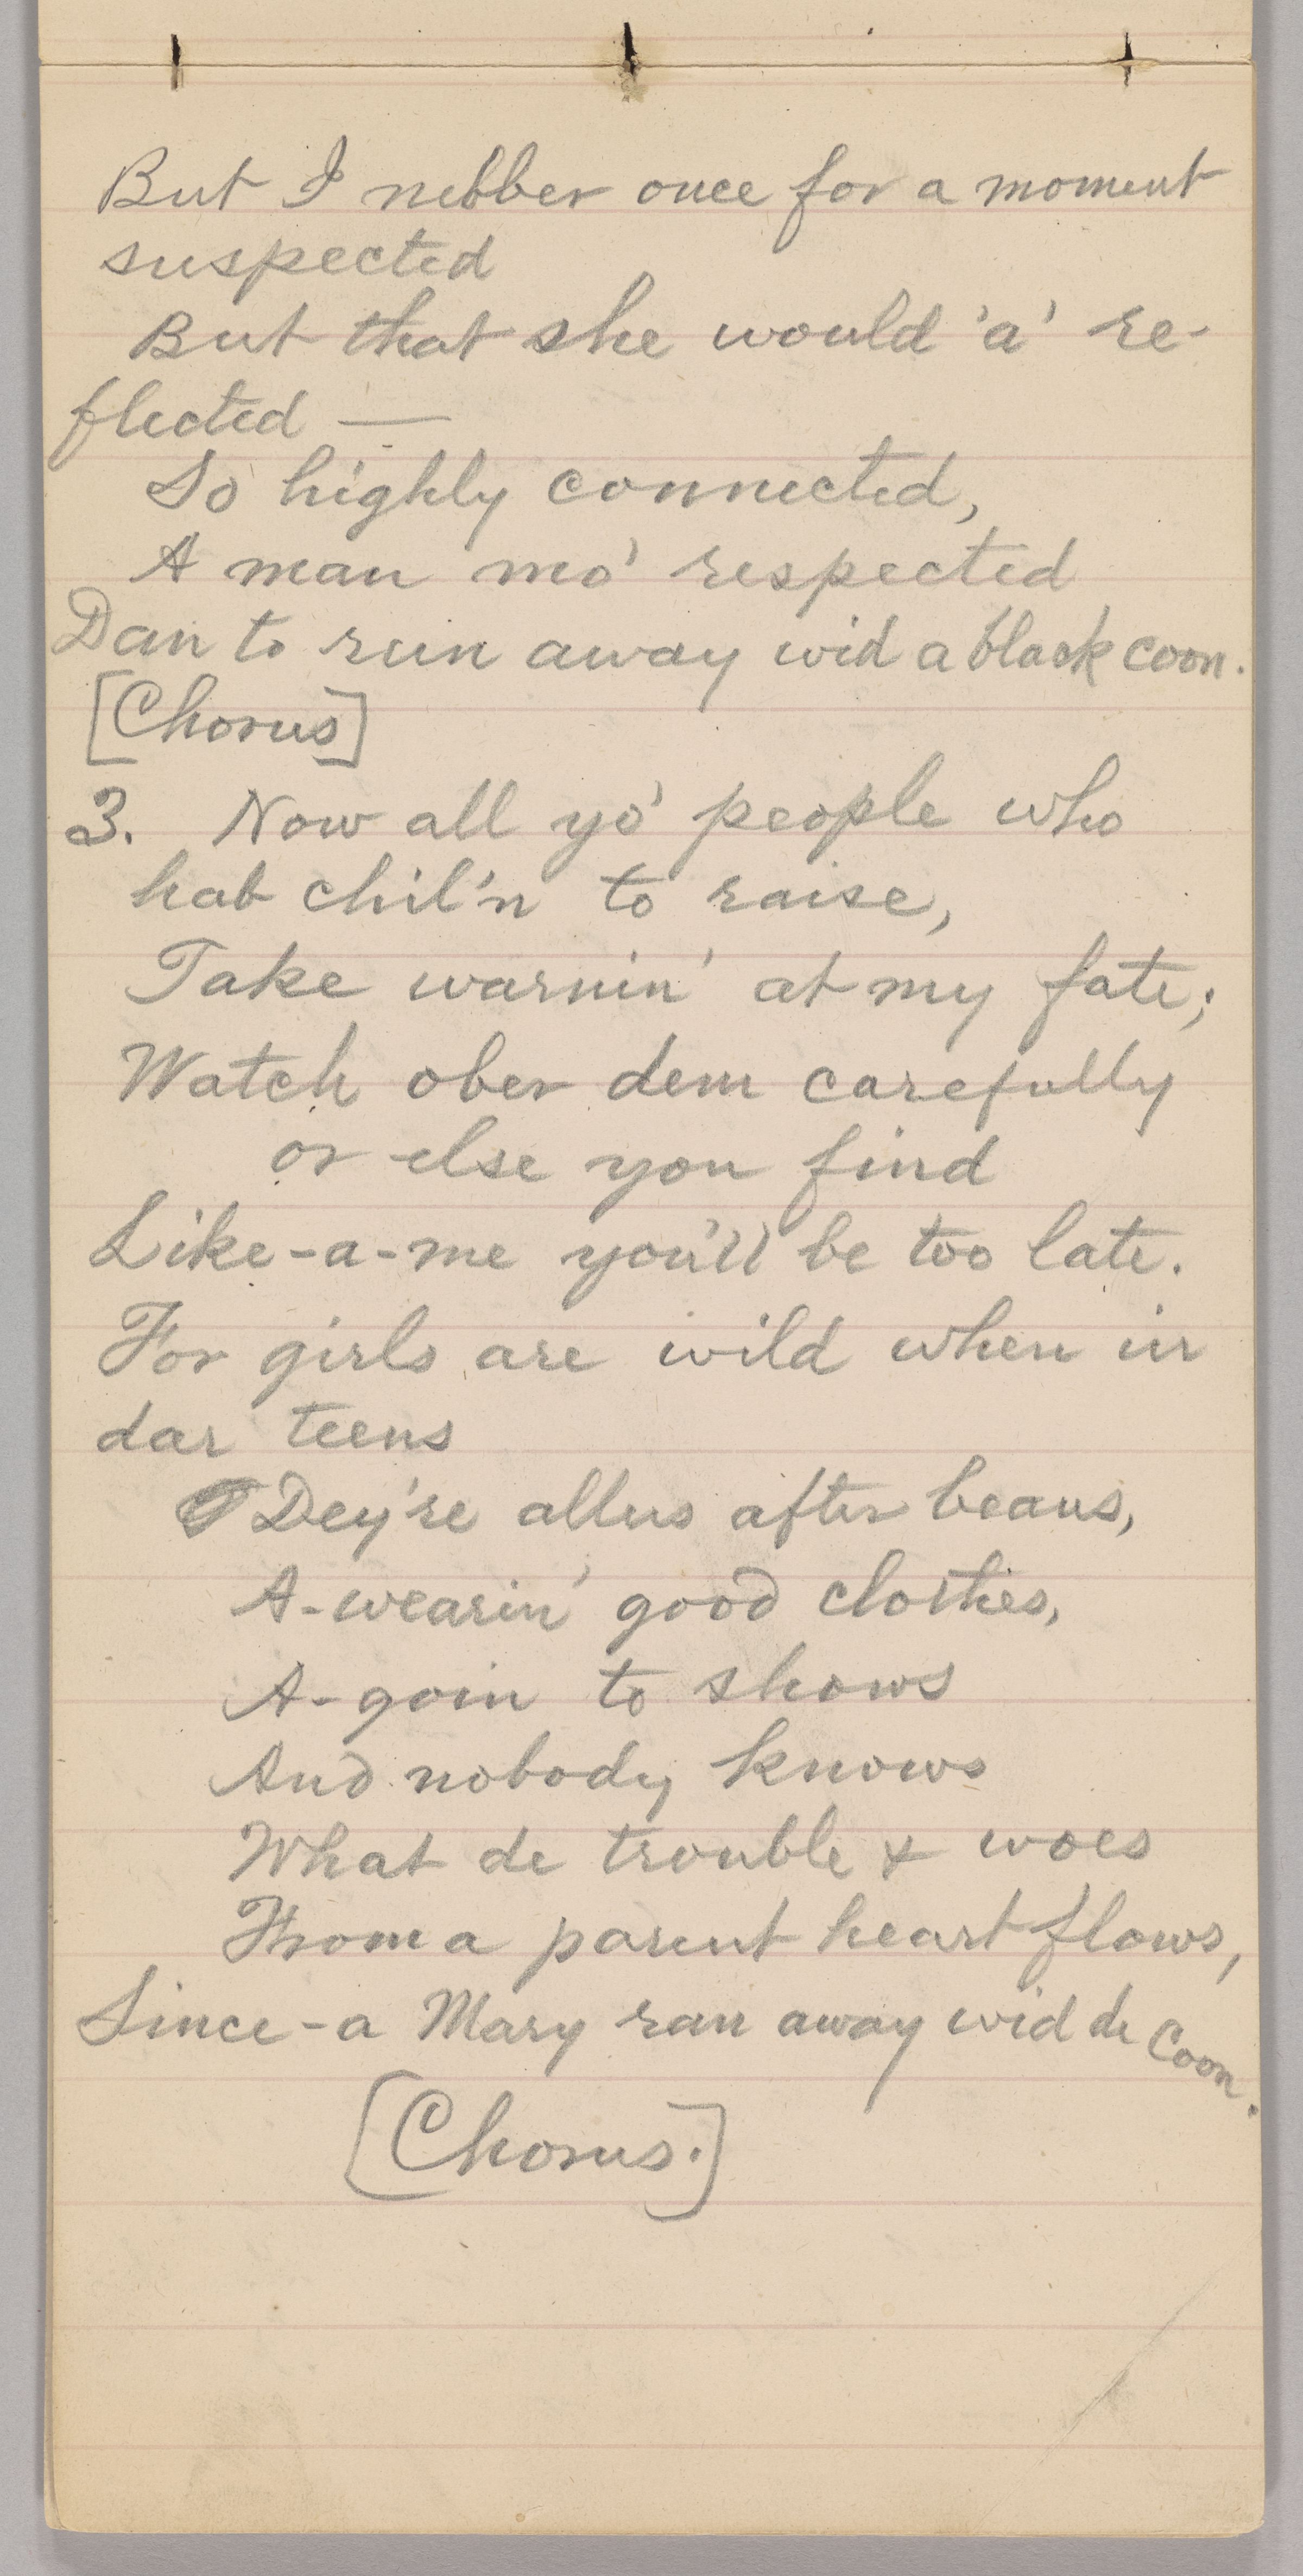 But I nebber once for a moment
suspected
But that she would 'a' re-
flected —
So highly connected,
A man mo' respected
Dan to run away wid a black coon.
[Chorus]
3. Now all yo' people who
hab chil'n to raise,
Take warnin' at my fate;
Watch ober dem carefully
or else you find
Like-a-me you'll be too late.
For girls are wild when in
dar teens
Dey're allus after beaus,
A-wearin' good clothes,
A-goin to shows
And nobody knows
What de trouble & woes
From a parent heart flows,
Since-a Mary ran away wid de Coon.
[Chorus.]